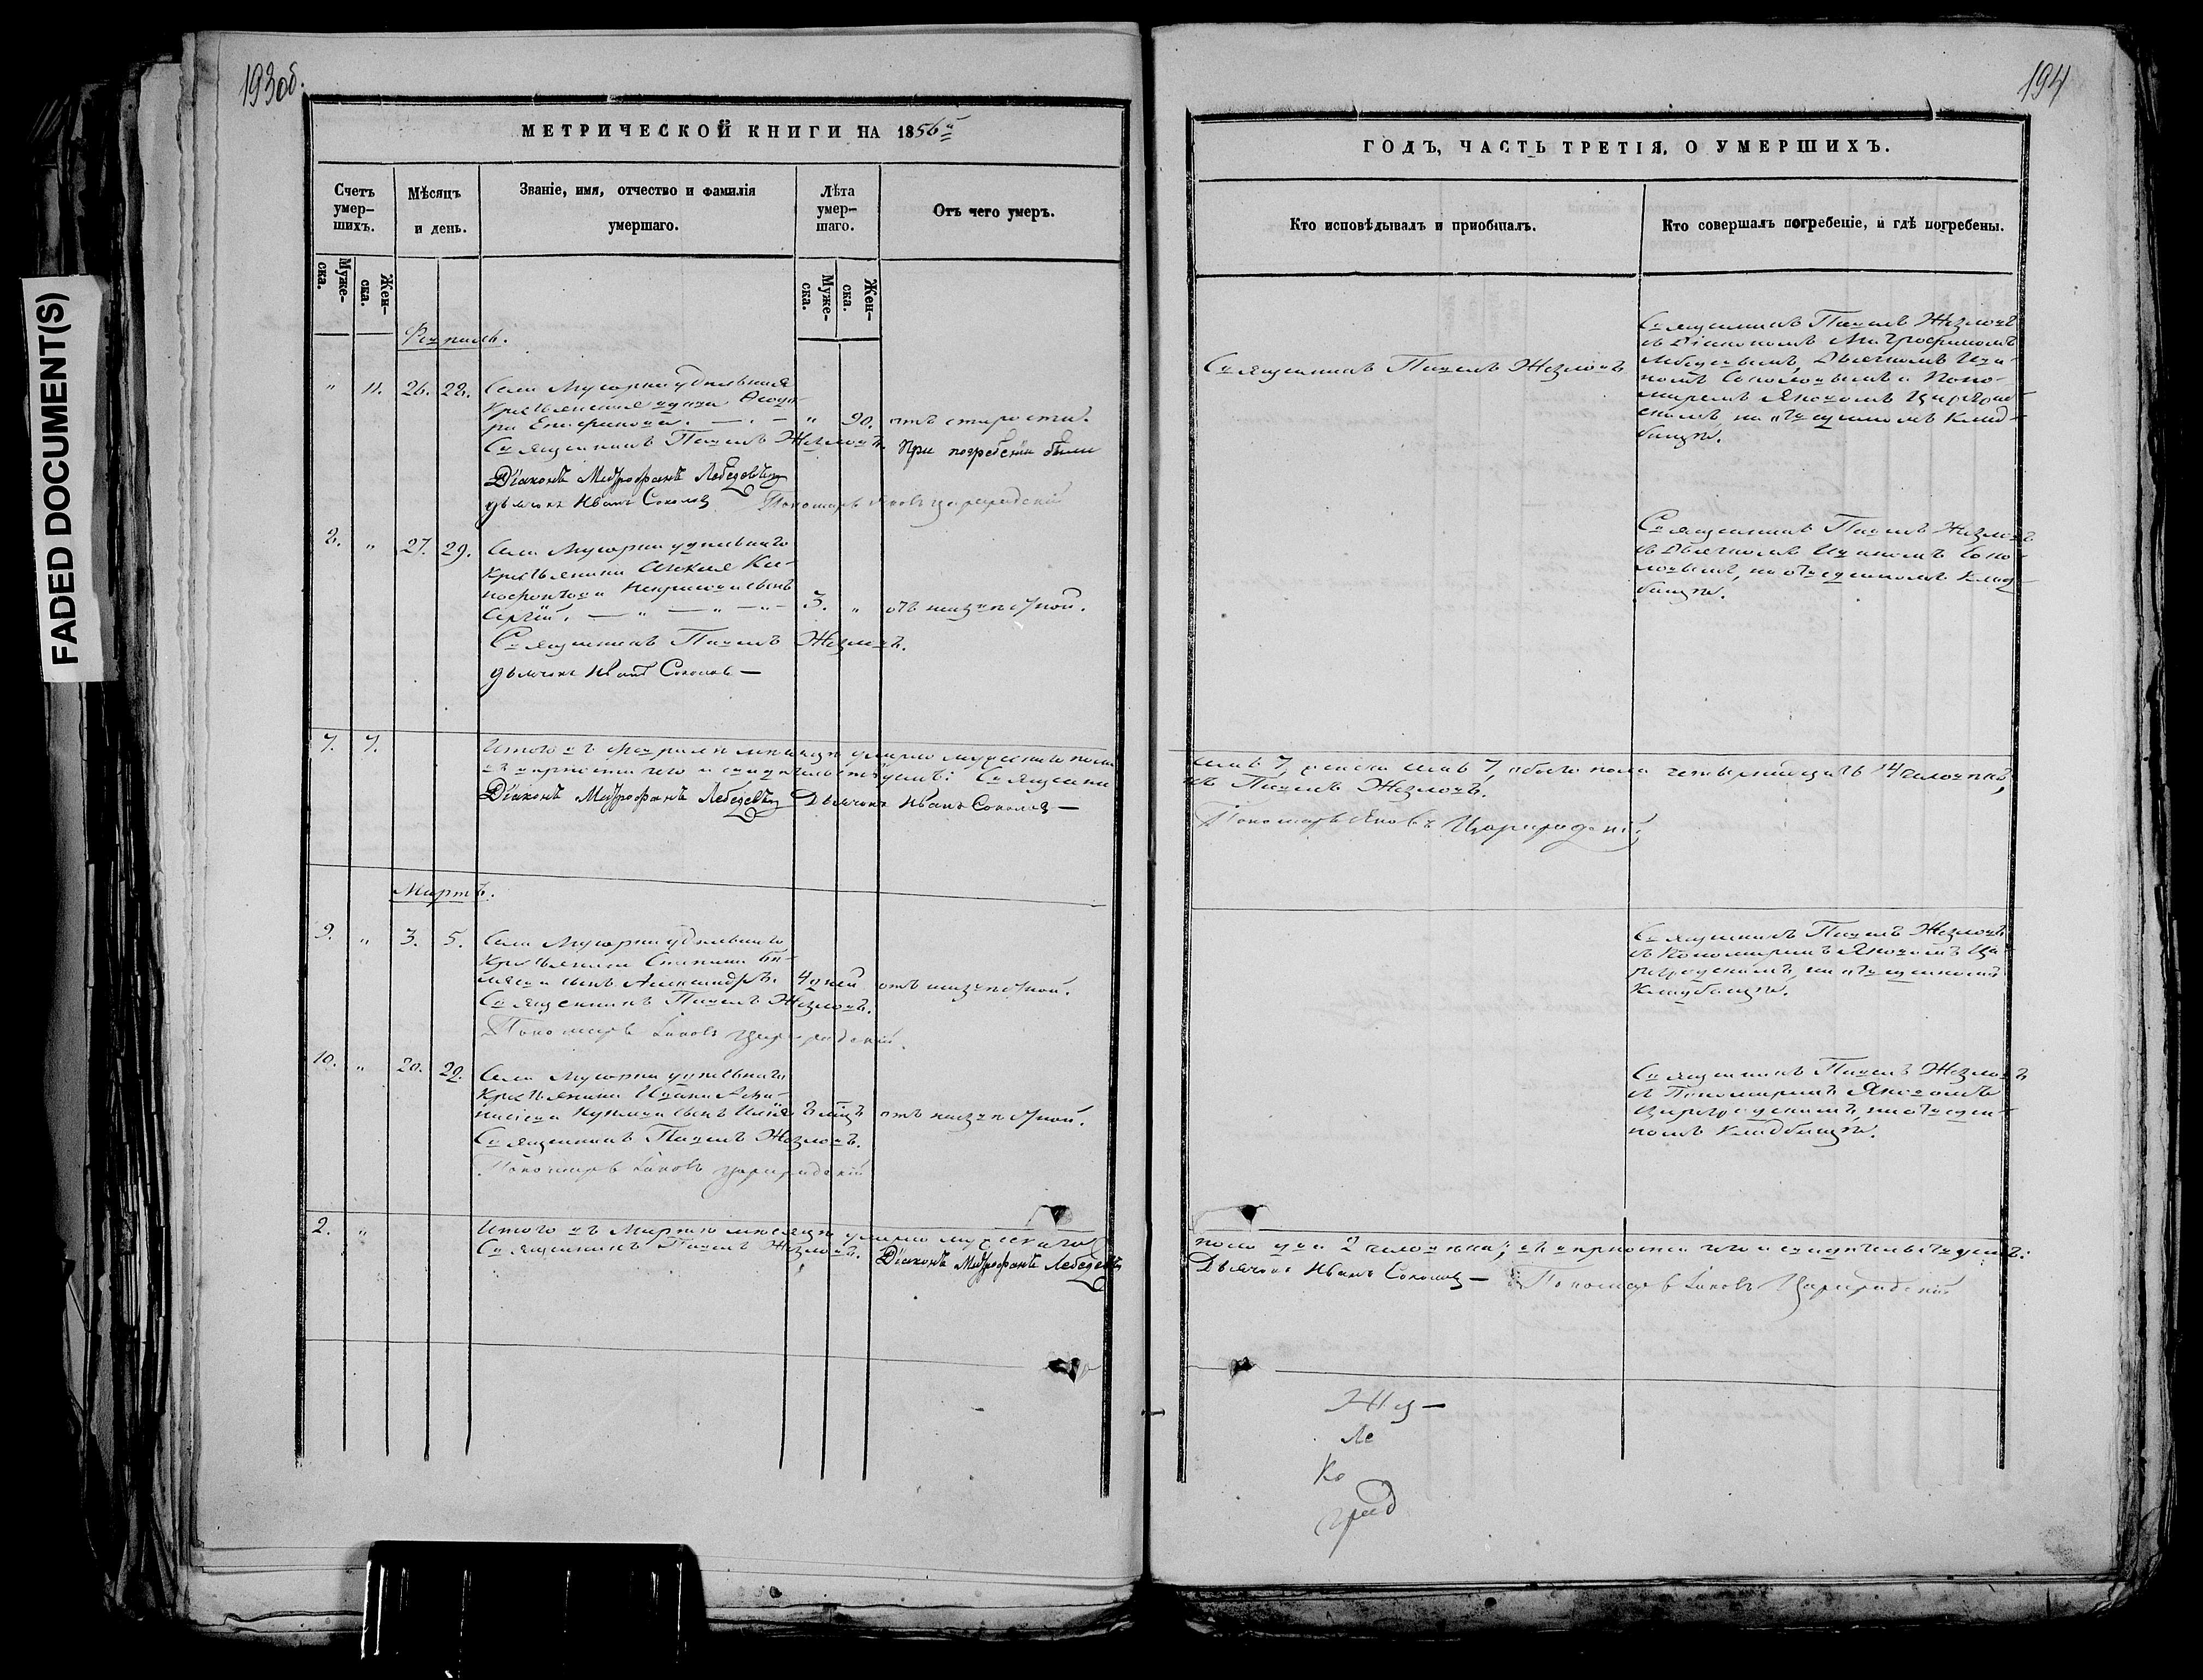 193 об.
194
FADED DOCUMENT(S)
МЕТРИЧЕСКОЙ КНИГИ НА 1856й
ГОДЪ, ЧАСТЬ ТРЕТІЯ, О УМЕРШИХЪ.
Счетъ умер-
шихъ.
Муже-
ска.
Жен-
ска.
Мѣсяцъ
и день.
Званіе, имя, отчество и фамилія
умершаго.
Лѣта
умер-
шаго.
Муже-
ска.
Жен-
ска.
Отъ чего умеръ.
Кто исповѣдывалъ и пріобщалъ.
Кто совершалъ погребеніе, и гдѣ погребены.
" 11. 26. 28. Села Мусорки удѣльная
крестьянская вдова Ѳеодо-
ра " 90. отъ старости.
Священникъ Павелъ Жезловъ. При погребеніи были
Діаконъ Митрофанъ Лебедевъ
дьячокъ Иванъ Соколов Пономарь Яковъ Цареградскій
Священникъ Павелъ Жезловъ
Священникъ Павелъ Жезловъ
съ Діакономъ Митрофаномъ
Лебедевымъ, Дьячкомъ Ива-
номъ Соколовымъ и Поно-
маремъ Яковомъ Цареград-
скимъ, на отведенномъ клад-
бищѣ.
8. " 27. 29. Села Мусорки удѣльнаго
крестьянина
сынъ
Сергій. 3. " отъ натужной.
Священникъ Павелъ Жезловъ.
дьячокъ Иванъ Соколовъ
Священникъ Павелъ Жезловъ
съ Дьячкомъ Иваномъ Соко-
ловымъ, на отведенномъ клад-
бищѣ.
7. 7. Итого въ Февралѣ мѣсяцѣ умерло мужеска пола
семь 7, женска семь 7, обоего пола четырнадцать 14 человѣкъ,
въ вѣрности чего и свидѣтельствуемъ: Священни-
къ Павелъ Жезловъ.
Діаконъ Митрофанъ Лебедевъ Дьячокъ Иванъ Соколов
Пономарь Яковъ Цареградскій
Мартъ.
9. " 3. 5. Села Мусорки удѣльнаго
крестьянина Степана
сынъ Александръ. 4 дней
Священникъ Павелъ Жезловъ.
Пономарь Іаковъ Цареградскій.
Священникъ Павелъ Жезловъ
съ Пономаремъ Яковомъ Ца-
реградскимъ, на отведенномъ
кладбищѣ.
10. " 20. 22. Села Мусорки удѣльнаго
крестьянина Ивана Аѳа-
насіева сынъ
Священникъ Павелъ Жезловъ.
Пономарь Іаковъ Цареградскій
Священникъ Павелъ Жезловъ
съ Пономаремъ Яковомъ
Цареградскимъ, на отведен-
номъ кладбищѣ.
2. " Итого въ Мартѣ мѣсяцѣ умерло мужескаго
пола два 2 человѣка; въ вѣрности чего и свидѣтельствуемъ:
Священникъ Павелъ Жезловъ. Діаконъ Митрофанъ Лебедевъ
Дьячокъ Иванъ Соколов Пономарь Іаковъ Цареградскій
Жез
Ле
Ко
град